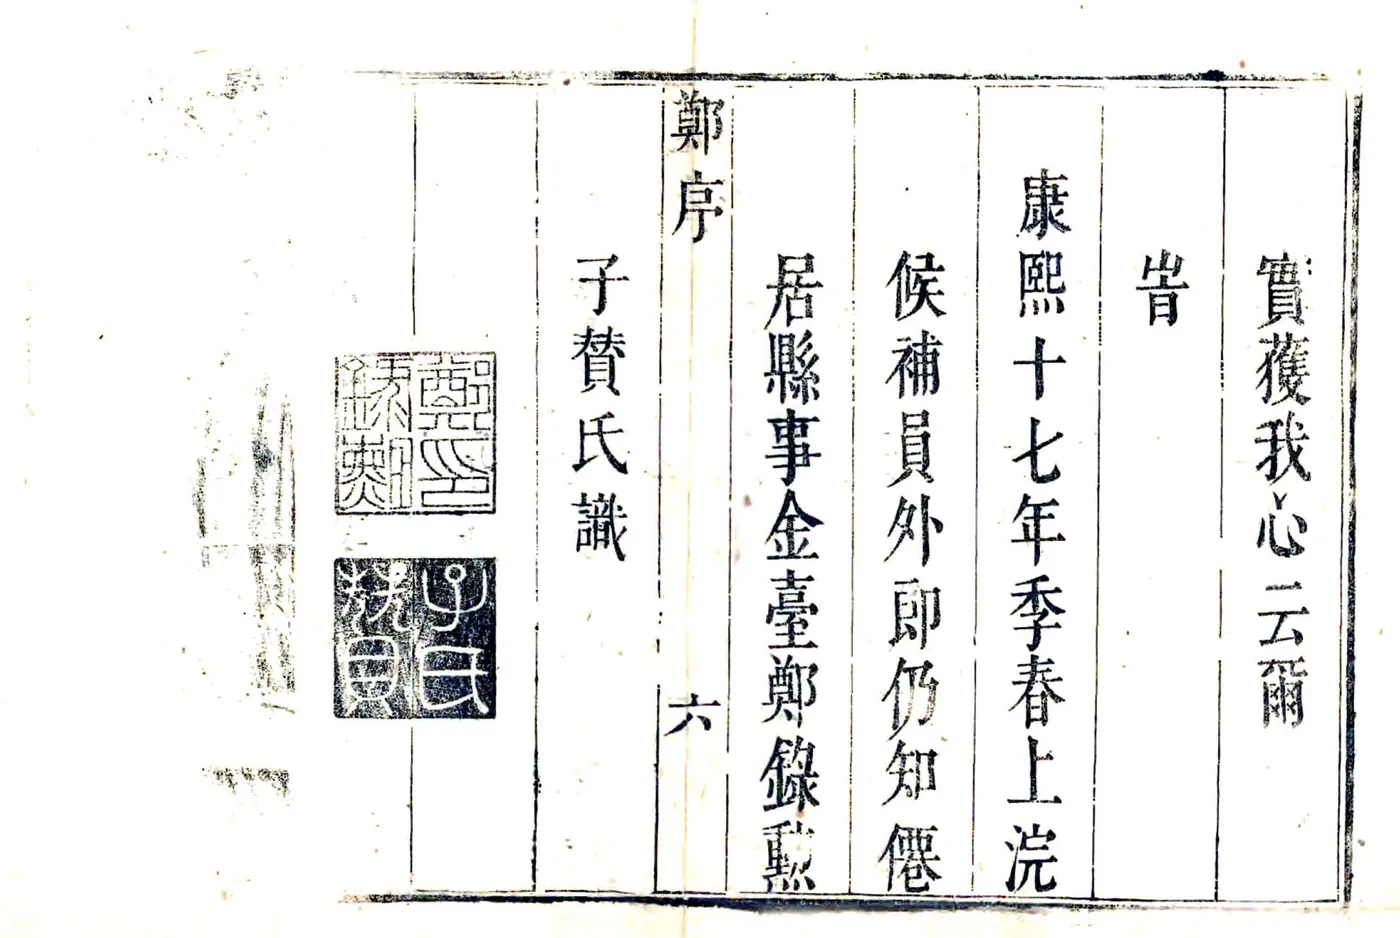 實獲我心云爾
旹
康熙十七年季春上浣
候補員外郎仍知僊
居縣事金臺鄭錄勳
鄭序 六
子賛氏識
鄭印錄勳
子賛氏